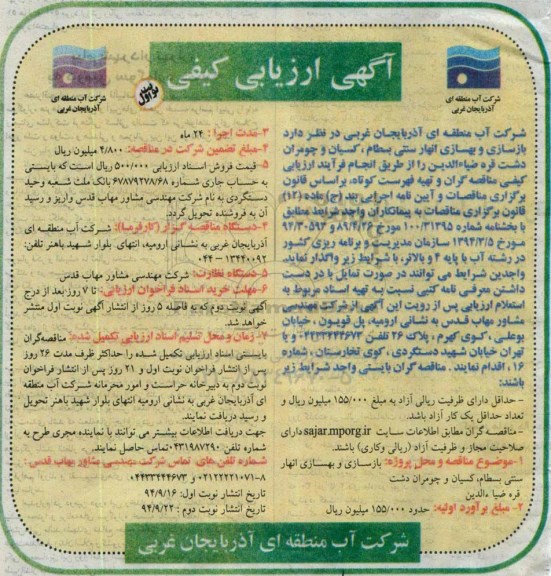 آگهی ارزیابی کیفی
نوبت اول
شرکت آب منطقه ای
آذربایجان غربی
شرکت آب منطقه ای
آذربایجان غربی
شرکت آب منطقه ای آذربایجان غربی در نظر دارد
بازسازی و بهسازی انهار سنتی بسطام، کسیان و جومران
دشت قره ضیاءالدین را از طریق انجام فرآیند ارزیابی
کیفی مناقصه گران و تهیه فهرست کوتاه، براساس قانون
برگزاری مناقصات و آیین نامه اجرایی بند (ج) ماده (۱۲)
قانون برگزاری مناقصات به پیمانکاران واجد شرایط مطابق
با بخشنامه شماره ۱۰۰/۳۱۳۹۵ مورخ ۸۹/۴/۲۶ و ۹۴/۳۰۵۹۲
مورخ ۱۳۹۴/۳/۵ سازمان مدیریت و برنامه ریزی کشور
در رشته آب با پایه ۴ و بالاتر، با شرایط زیر واگذار نماید.
واجدین شرایط می توانند در صورت تمایل با در دست
داشتن معرفی نامه کتبی نسبت به تهیه اسناد مربوط به
استعلام ارزیابی پس از رویت این آگهی از شرکت مهندسی
مشاور مهاب قدس به نشانی ارومیه، پل قویون، خیابان
بوعلی، کوی کهرم، پلاک ۲۶ تلفن ۰۴۴۳۳۴۴۶۷۳ و یا
تهران خیابان شهید دستگردی، کوی تخارستان، شماره
۱۶، اقدام نمایند. مناقصه گران بایستی واجد شرایط زیر
باشند:
- حداقل دارای ظرفیت ریالی آزاد به مبلغ ۱۵۵/۰۰۰ میلیون ریال و
تعداد حداقل یک کار آزاد باشد.
- مناقصه گران مطابق اطلاعات سایت sajar.mporg.ir دارای
صلاحیت مجاز و ظرفیت آزاد (ریالی وکاری) باشند.
۱-موضوع مناقصه و محل پروژه: بازسازی و بهسازی انهار
سنتی بسطام، کسیان و جومران دشت
قره ضیاءالدین
۲- مبلغ برآورد اولیه: حدود ۱۵۵/۰۰۰ میلیون ریال
۳-مدت اجرا: ۲۴ ماه
۴-مبلغ تضمین شرکت در مناقصه: ۴/۸۰۰ میلیون ریال
۵- قیمت فروش اسناد ارزیابی ۵۰۰/۰۰۰ ریال است که بایستی
به حساب جاری شماره ۶۷۸۷۹۲۷۸/۶۸ بانک ملت شعبه وحید
دستگردی به نام شرکت مهندسی مشاور مهاب قدس واریز و رسید
آن به فروشنده تحویل گردد.
۴-دستگاه مناقصه گزار (کارفرما): شرکت آب منطقه ای
آذربایجان غربی به نشانی ارومیه، انتهای بلوار شهید باهنر تلفن:
۱۳۴۴۰۰۹۲ - ۰۴۴
۵-دستگاه نظارت: شرکت مهندسی مشاور مهاب قدس
۶-مهلت خرید اسناد فراخوان ارزیابی: تا ۷ روز بعد از درج
آگهی نوبت دوم که به فاصله ۵ روز از انتشار آگهی نوبت اول منتشر
خواهد شد.
۷- زمان و محل تسلیم اسناد ارزیابی تکمیل شده: مناقصه گران
بایستی اسناد ارزیابی تکمیل شده را حداکثر ظرف مدت ۲۶ روز
پس از انتشار فراخوان نوبت اول و ۲۱ روز پس از انتشار فراخوان
نوبت دوم به دبیرخانه حراست و امور محرمانه شرکت آب منطقه
ای آذربایجان غربی به نشانی ارومیه انتهای بلوار شهید باهنر تحویل
و رسید دریافت نمایند.
جهت دریافت اطلاعات بیشتر می توانند با نماینده مجری طرح به
شماره تلفن ۰۴۳۱۹۸۷۲۹۰ تماس حاصل نمایند.
شماره تلفن های تماس شرکت مهندسی مشاور مهاب قدس:
۰۲۱۲۲۲۲۱۰۷۱-۸ و ۰۴۴۳۳۴۴۶۷۳
تاریخ انتشار نوبت اول: ۹۴/۹/۱۶
تاریخ انتشار نوبت دوم: ۹۴/۹/۲۲
شرکت آب منطقه ای آذربایجان غربی